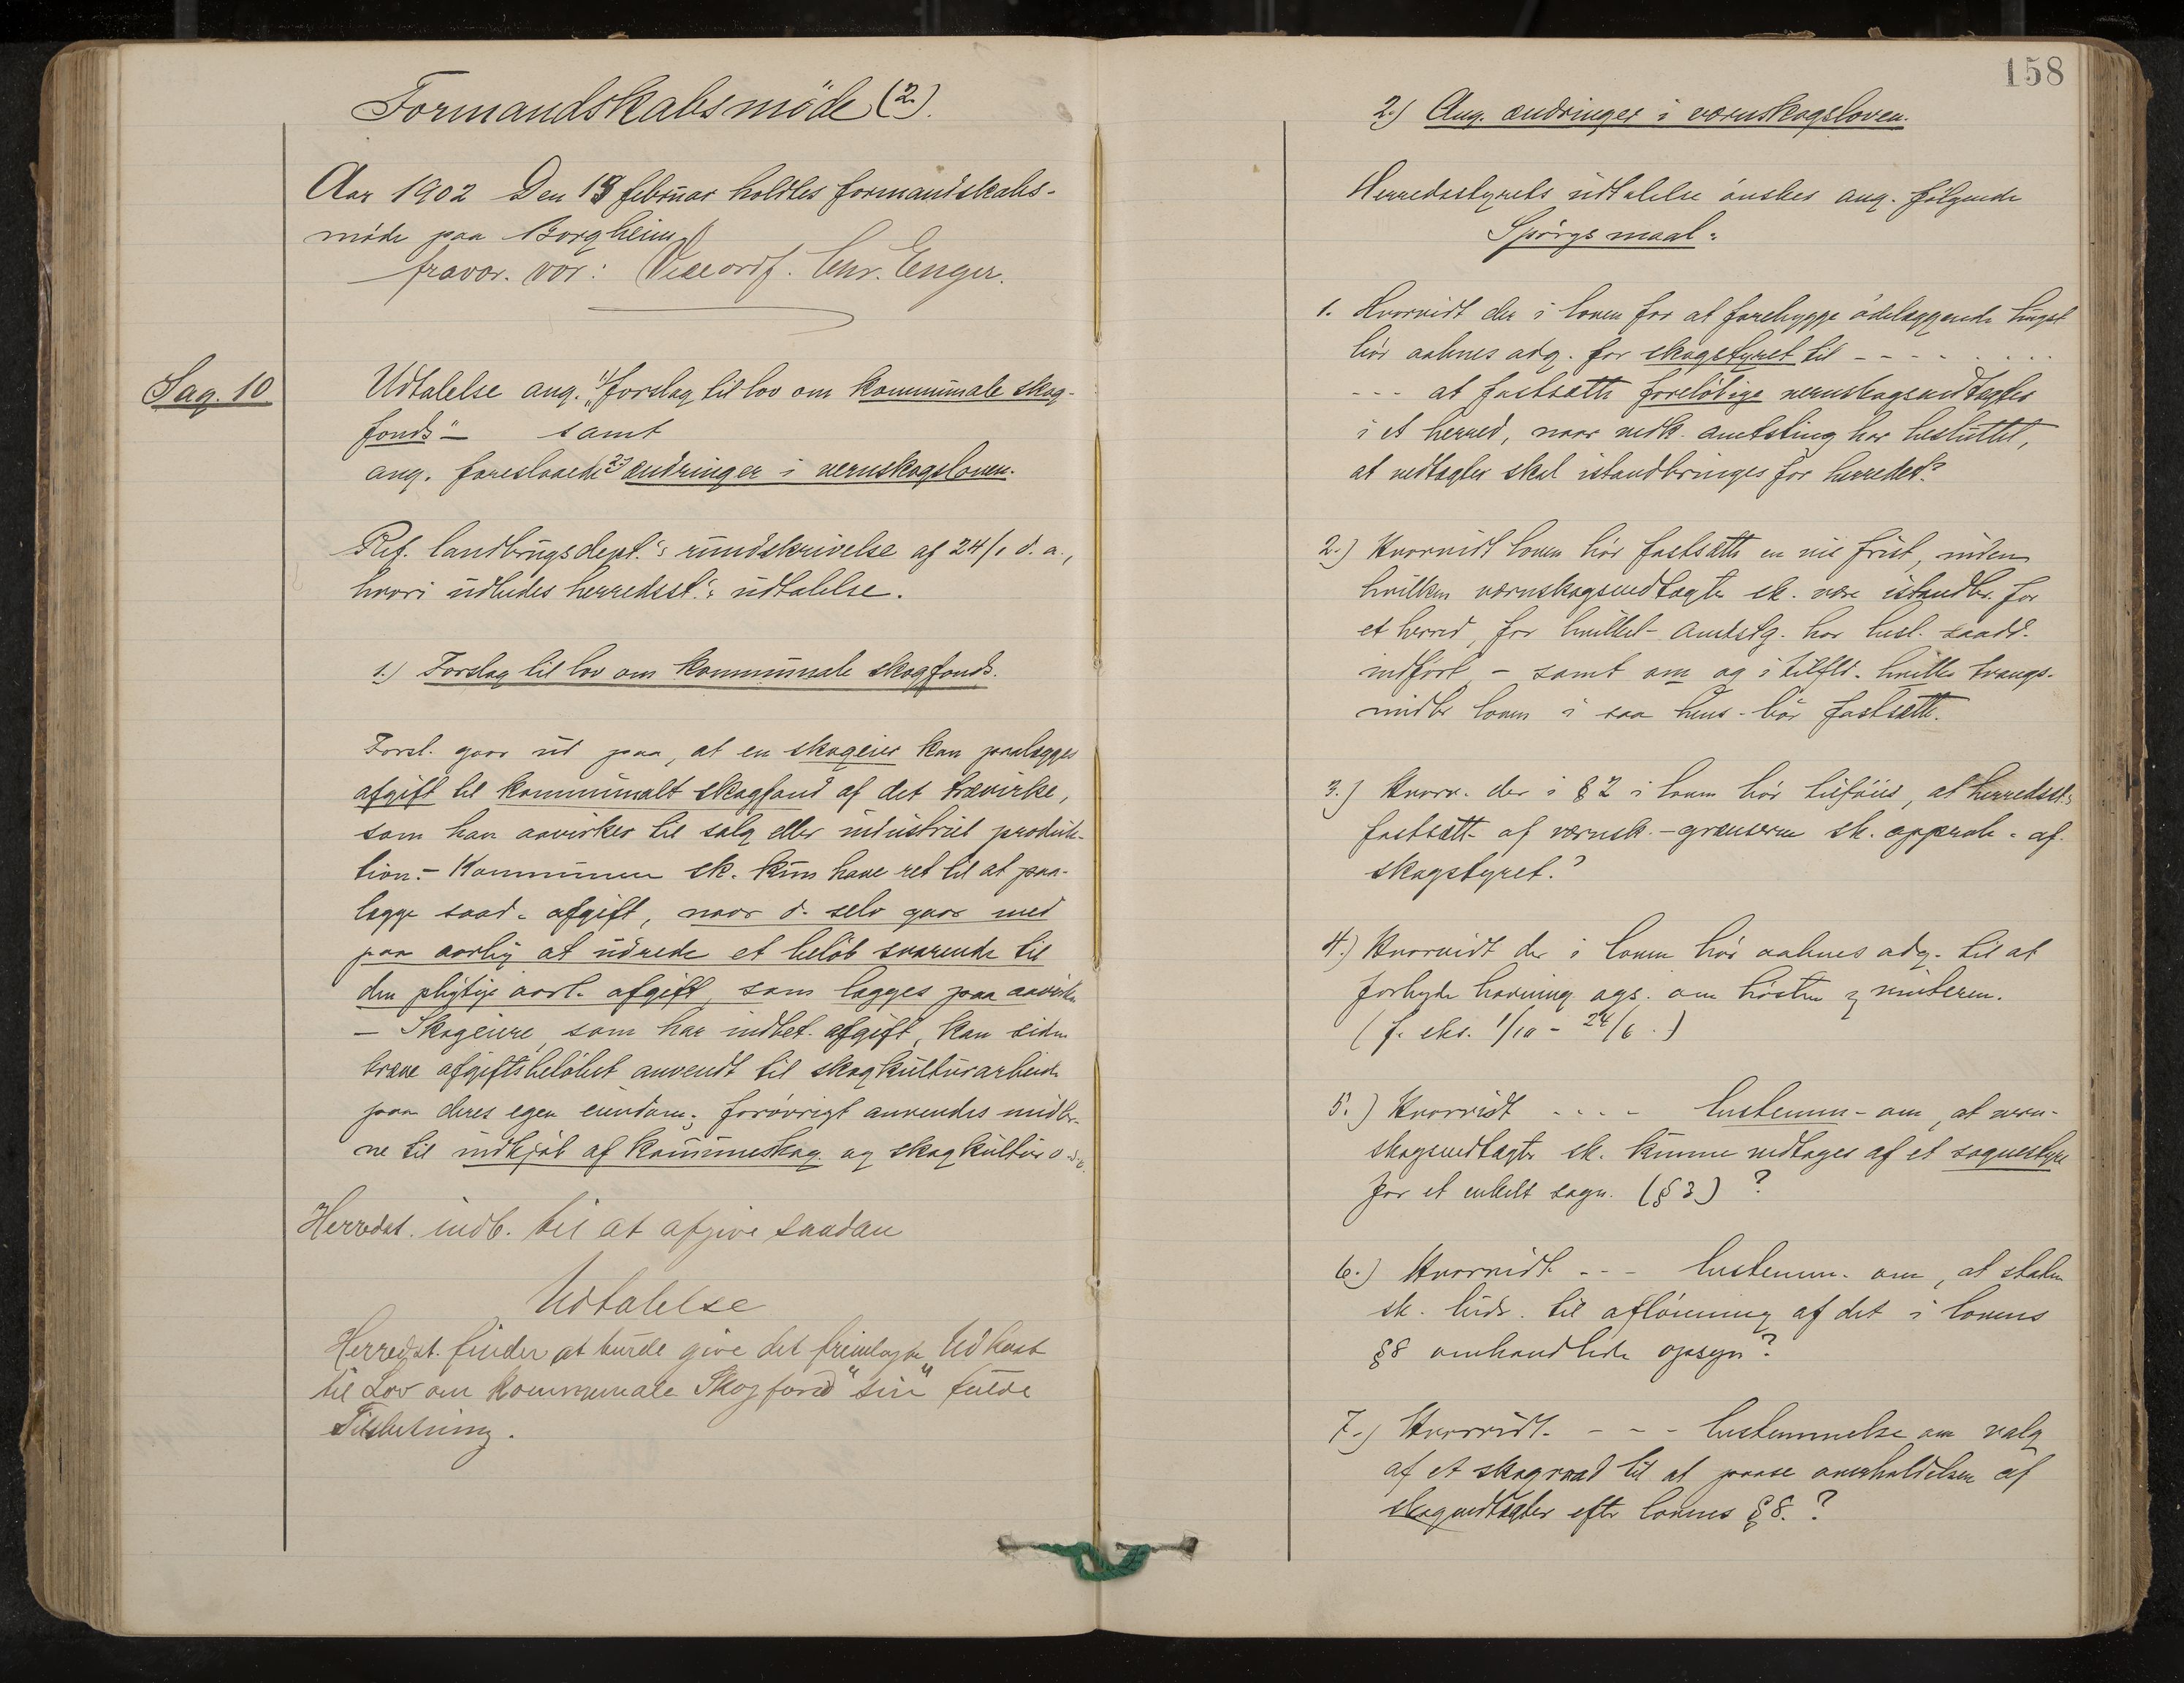 Formandskabsmöde (2.)
Aar 1902 Den 18 februar holdtes formandskabs-
möde paa Borgheim
fravær. var: Viceordf. Chr. Enger.
Sag. 10
Udtalelse ang. 1) "forslag til lov om kommunale skog-
fonds" – samt
ang. foreslaaede 2) ændringer i vernskogsloven.
Ref. landbrugsdept.'s rundskrivelse af 24/1 d. a.,
hvori udbedes herredsst.'s udtalelse.
1.) Forslag til lov om kommunale skogfonds.
Forsl. gaar ud paa, at en skogeier kan paalægges
afgift til kommunalt skogfond af det trævirke,
som han avirker til salg eller industriel produk-
tion. – Kommunen sk. kun have ret til at paa-
lægge saad. afgift, naar d. selv gaar med
paa aarlig at udrede et belöb svarende til
den pligtige aarl. afgift, som lægges paa
– Skogeiere, som har indbet. afgift, kan siden
kræve afgiftsbelöbet anvendt til skogkulturarbeide
paa deres egen eiendom; forövrigt anvendes midler-
ne til indkjöb af kommuneskog og skogkultur o.s.v.
Herredst. indb. til at afgive saadan
Udtalelse
Herredst. finder at burde give det fremlagte Udkast
til Lov om kommunale Skogfond "sin" fulde
Tilslutning.
158
2.) Ang. ændringer i vernskogsloven.
Herredsstyrets udtalelse önskes ang. fölgende
Spörgsmaal:
1. Hvorvidt der i loven for at forebygge ödelæggende hugst
bör aabnes adg. for skogstyret til - - - - . . . .
- - - at fastsætte forelöbige vernskogsvedtægter
i et herred, naar vedk. amtsting har besluttet,
at vedtægter skal istandbringes for herredet?
2.) Hvorvidt loven bör fastsætte en vis frist, inden
hvilken vernskogsvedtægter sk. være istandbr. for
et herred, for hvilket amtstg. har besl. saad.
indfört – samt om og i tilfld. hvilke tvangs-
midler loven i saa hens. bör fastsætte.
3.) Hvorv. der i § 2 i loven bör tilföies, at herredsst.'s
fastsætt. af vernsk.-grænserne sk. approb. af
skogstyret?
4.) Hvorvidt der i loven bör aabnes adg. til at
forbyde havning ogs. om hösten & vinteren.
(f. eks. 1/10 – 24/6.)
5.) Hvorvidt - - - - bestemm. om, at vern-
skogsvedtægter sk. kunne vedtages af et sognestyre
for et enkelt sogn. (§ 3) ?
6.) Hvorvidt - - - bestemm. om, at staten
sk. bidr. til aflönning af det i lovens
§8 omhandlede opsyn?
7.) Hvorvidt - - - bestemmelse om valg
af et skograad til at paase overholdelsen af
skogvedtægter efter lovens § 8. ?